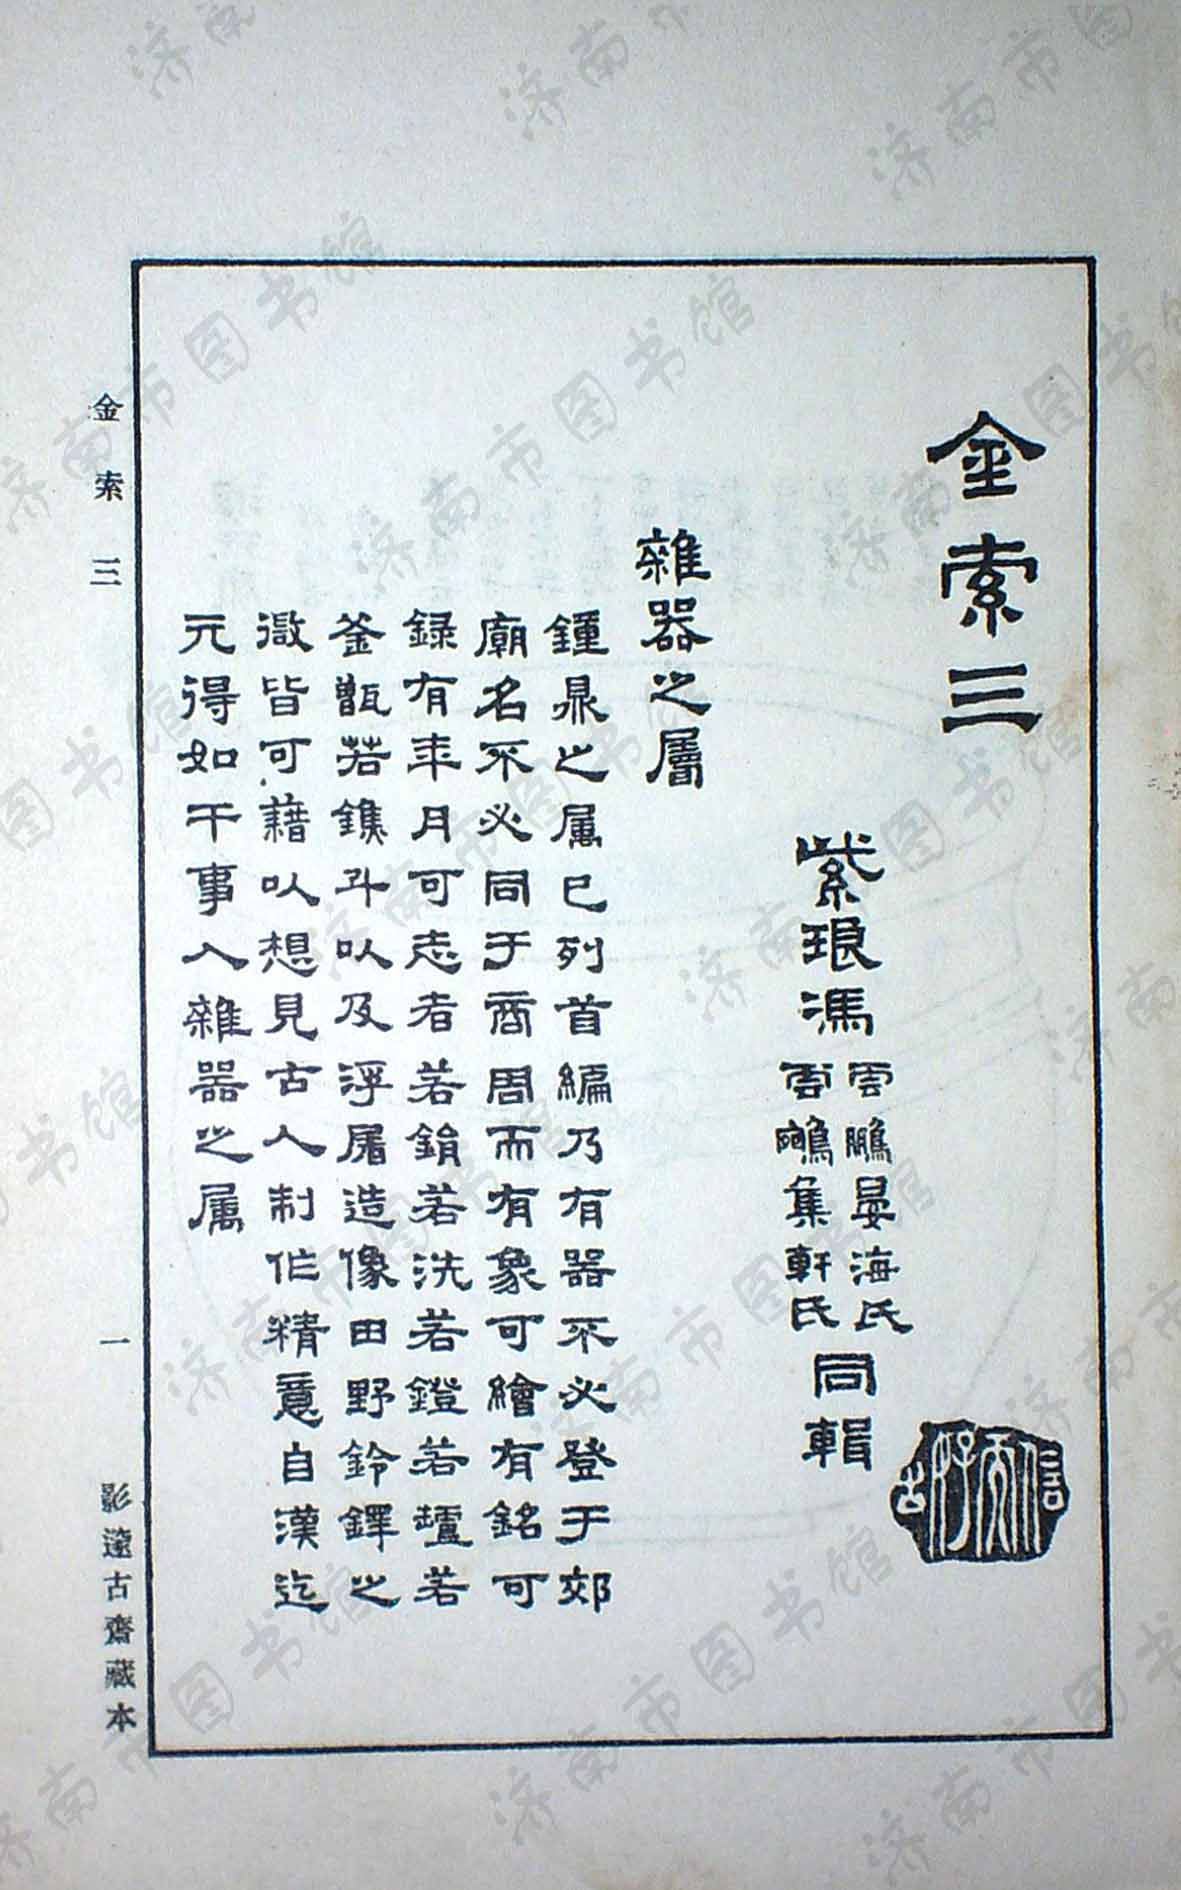 金索三
紫琅馮
雲鵬晏海氏
雲鵷集軒氏
同輯
信而好古
雜器之屬
鍾鼎之属已列首編乃有器不必登于郊
廟名不必同于商周而有象可繪有銘可
録有年月可志者若鋗若洗若鐙若鑪若
釜甑若鐎斗以及浮屠造像田野鈴鐸之
微皆可藉以想見古人制作精意自漢迄
元得如干事入雜器之属
金索三
一
影遠古齋藏本
济南市图书馆